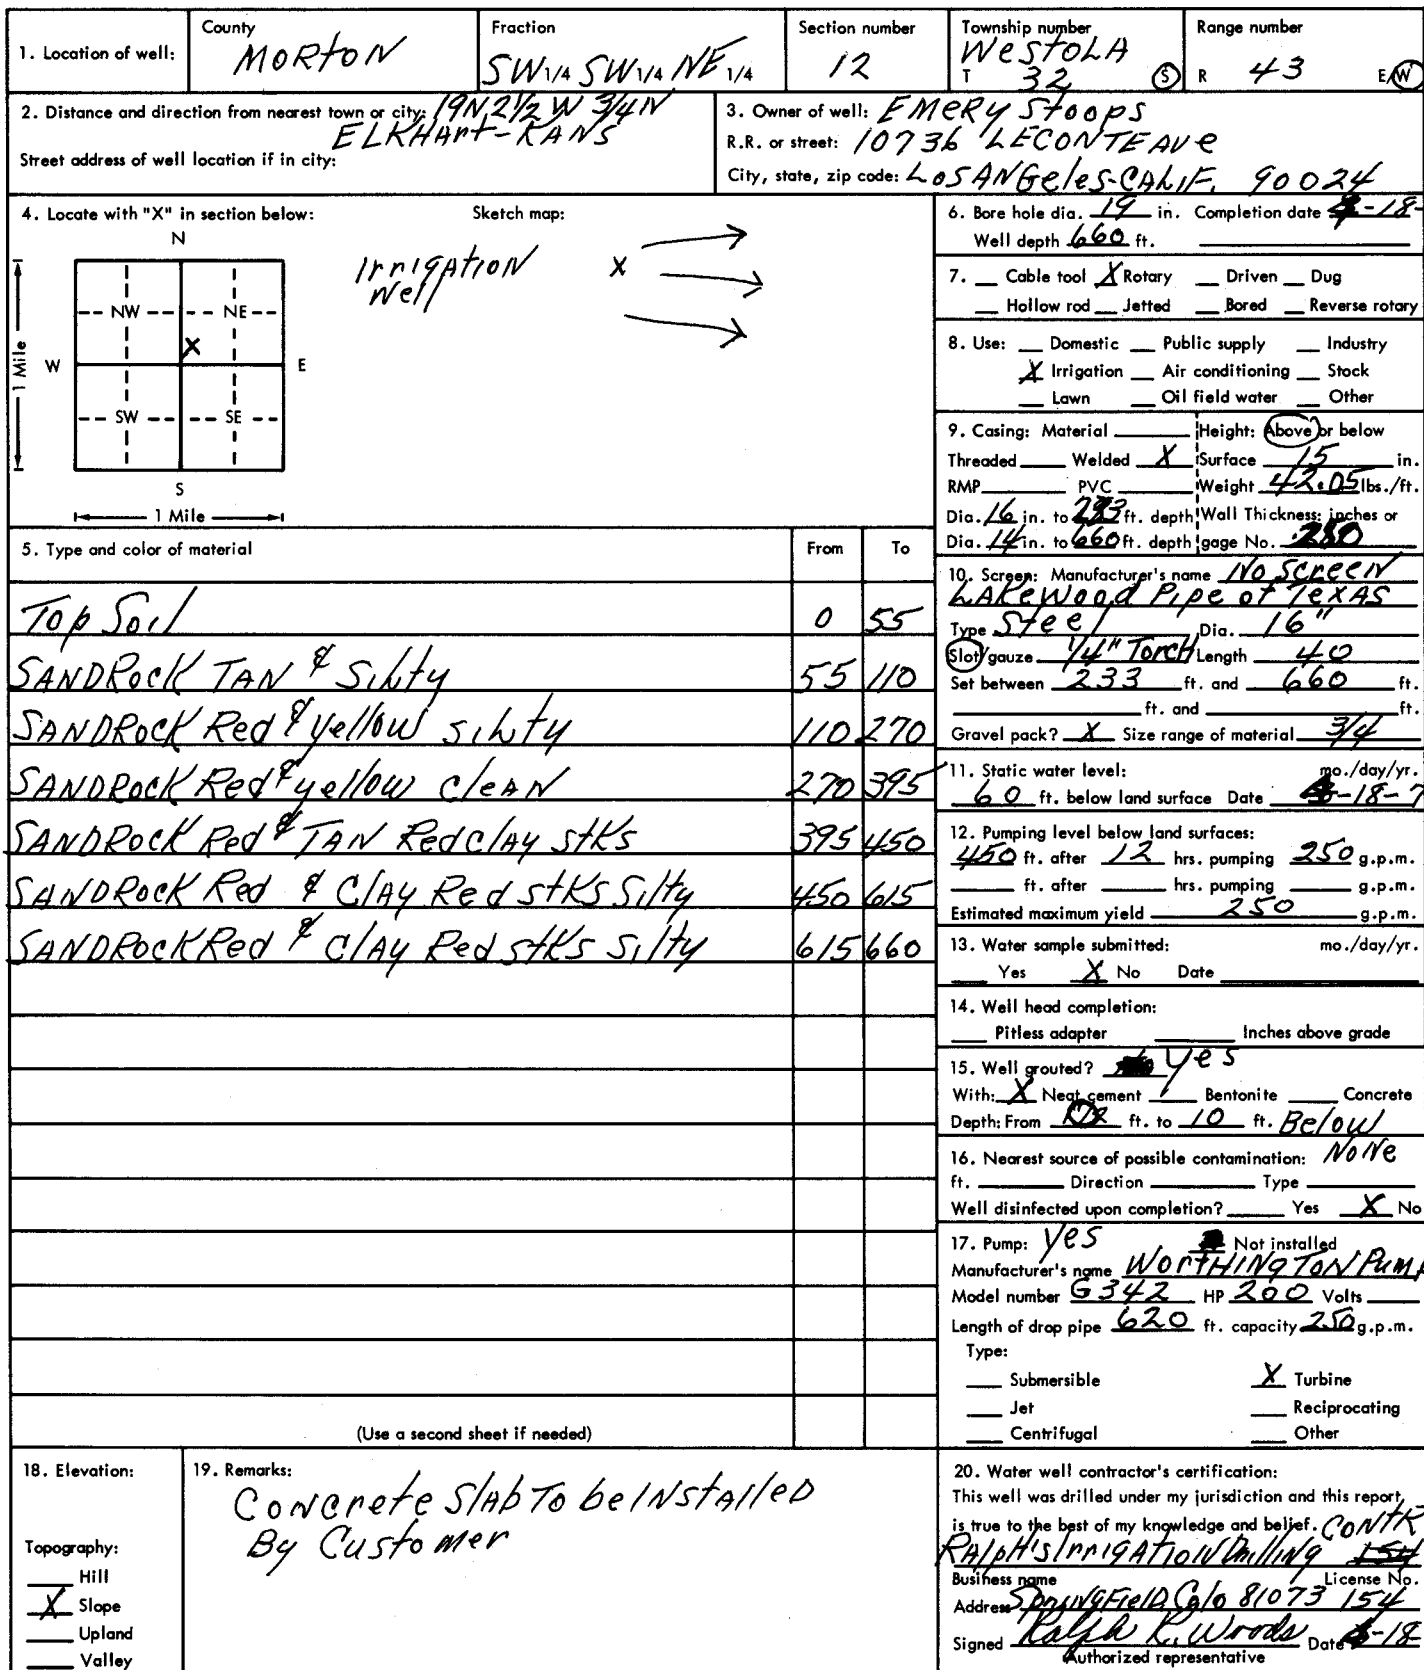 1. Location of well: County MORTON Fraction SW 1/4 SW 1/4 NE 1/4 Section number 12 Township number WestOLA T 32 S Range number R 43 E/W
2. Distance and direction from nearest town or city: 19N 2 1/2 W 3/4 N
ELKHArt-KANS
Street address of well location if in city:
3. Owner of well: EMERY Stoops
R.R. or street: 10736 LECONTE AVe
City, state, zip code: LOSANGeles-CALIF. 90024
4. Locate with "X" in section below:
Sketch map:
N
NW NE
X
W E
SW SE
S
1 Mile
1 Mile
IrrigAtION
Well
X
5. Type and color of material From To
Top Soil 0 55
SANDRocK TAN & Silty 55 110
SANDRocK Red & Yellow silty 110 270
SANDRocK Red & yellow CleAN 270 395
SANDRocK Red & TAN Red ClAy stKs 395 450
SANDRocK Red & ClAy Red stKs Silty 450 615
SANDRocK Red & ClAy Red stKs Silty 615 660
(Use a second sheet if needed)
6. Bore hole dia. 19 in. Completion date -18-
Well depth 660 ft.
7. Cable tool X Rotary Driven Dug
Hollow rod Jetted Bored Reverse rotary
8. Use: Domestic Public supply Industry
X Irrigation Air conditioning Stock
Lawn Oil field water Other
9. Casing: Material Height: Above or below
Threaded Welded X Surface 15 in.
RMP PVC Weight 42.05 lbs./ft.
Dia. 16 in. to 233 ft. depth Wall Thickness: inches or
Dia. 14 in. to 660 ft. depth gage No. .250
10. Screen: Manufacturer's name No Screen
LAKeWood Pipe of TeXAS
Type Steel Dia. 16"
Slot/gauze 1/4" Torch Length 40
Set between 233 ft. and 660 ft.
ft. and ft.
Gravel pack? X Size range of material 3/4
11. Static water level: mo./day/yr.
60 ft. below land surface Date -18-7
12. Pumping level below land surfaces:
450 ft. after 12 hrs. pumping 250 g.p.m.
ft. after hrs. pumping g.p.m.
Estimated maximum yield 250 g.p.m.
13. Water sample submitted: mo./day/yr.
Yes X No Date
14. Well head completion:
Pitless adapter Inches above grade
15. Well grouted? yes
With: X Neat cement Bentonite Concrete
Depth: From ft. to 10 ft. Below
16. Nearest source of possible contamination: NoNe
ft. Direction Type
Well disinfected upon completion? Yes X No
17. Pump: yes Not installed
Manufacturer's name WortHINGTON Pump
Model number G342 HP 200 Volts
Length of drop pipe 620 ft. capacity 250 g.p.m.
Type:
Submersible X Turbine
Jet Reciprocating
Centrifugal Other
18. Elevation:
Topography:
Hill
X Slope
Upland
Valley
19. Remarks:
CoNcrete SlAb To be INstAlleD
By Customer
20. Water well contractor's certification:
This well was drilled under my jurisdiction and this report
is true to the best of my knowledge and belief. CoNtR
RAlpH's IrrigATION Drilling 154
Business name License No.
Address SpringField, Colo 81073 154
Signed Ralph R. Woods Date -18-
Authorized representative